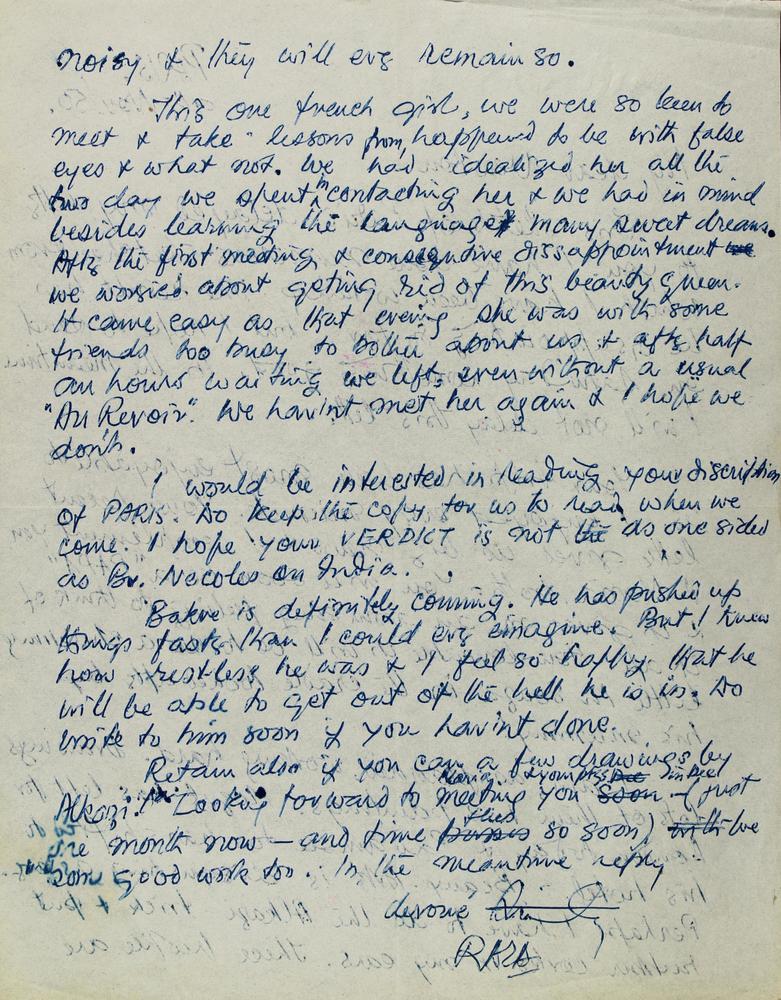 noisy & they will ever remain so.
This one french girl, we were so keen to
meet & take lessons from, happened to be with false
eyes & what not. We had idealized her all the
two day we spent in contacting her & we had in mind
besides learning the language many sweat dreams.
After the first meeting & consequtive dissappointment
we worried about geting rid of this beauty queen.
It came easy as that evening she was with some
friends too busy to bother about us & after half
an hours waiting we left, even without a usual
"Au Revoir". We havin't met her again & I hope we
don't.
I would be interested in reading your discription
of PARIS. Do keep the copy for us to read when we
come. I hope your VERDICT is not as one sided
as Br. Necoles on India.
Bakre is definitely coming. He has pushed up
things faster than I could ever emagine. But I knew
how restless he was & I feel so happy that he
will be able to get out of the hell he is in. Do
write to him soon if you havin't done.
Retain also if you can a few drawings by
Alkazi! Looking forward to meeting you (just
one month now — and time flies so soon) We
some good work too. In the meantime reply
RAZA